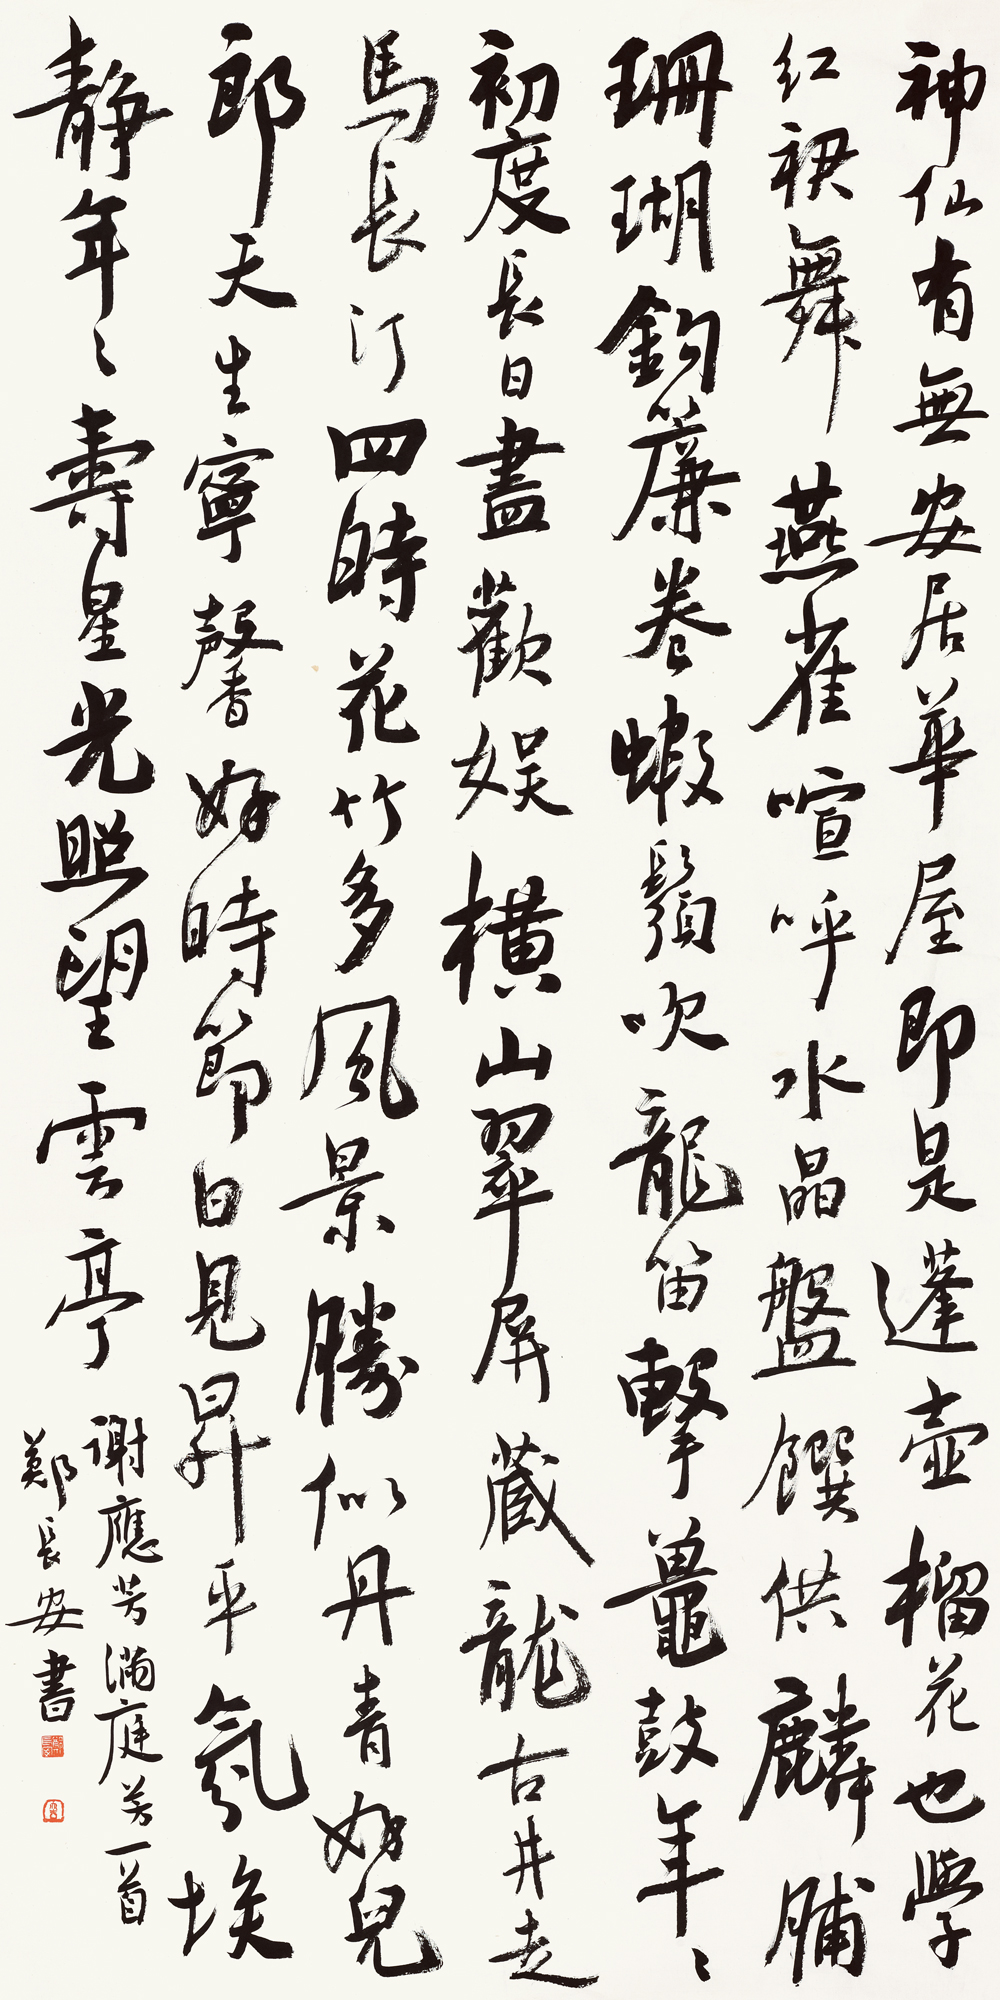 神仙有無安居華屋即是蓬壺榴花也學
紅裙舞燕雀喧呼水晶盤饌供麟脯
珊瑚鉤簾卷蝦鬚吹龍笛擊鼉鼓年〻
初度長日盡歡娱橫山翠屏藏龍古井走
馬長汀四時花竹多風景勝似丹青好兒
郎天生寧馨好時節日見昇平氛埃
靜年〻壽星光照望雲亭
謝應芳滿庭芳一首
鄭長安書